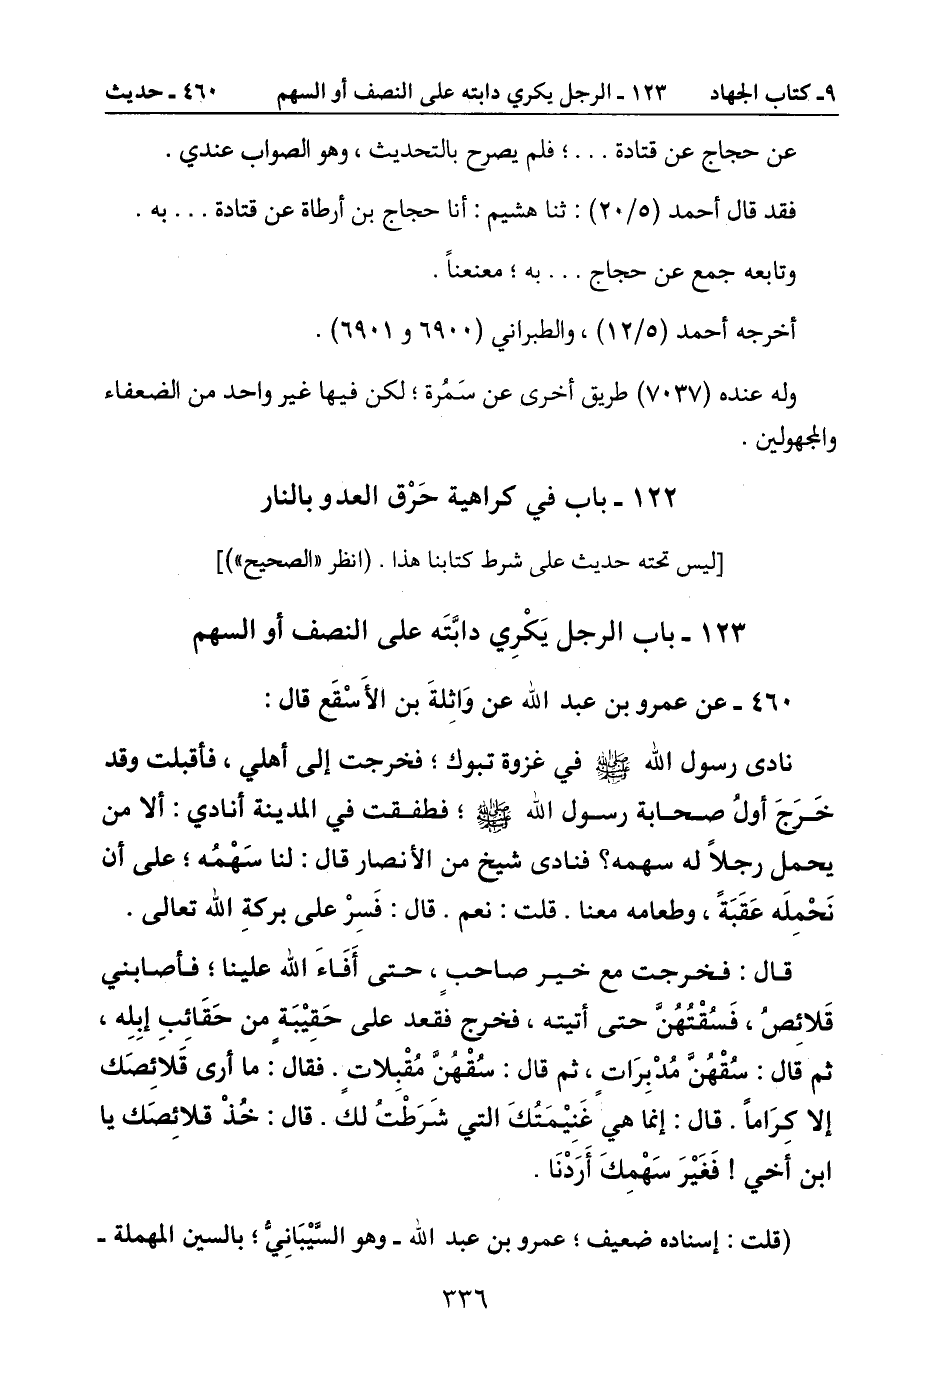 ٩ـ كتاب الجهاد ١٢٣ ـ الرجل يكري دابته على النصف أو السهم ٤٦٠ ـ حديث
عن حجاج عن قتادة . . . ؛ فلم يصرح بالتحديث ، وهو الصواب عندي .
فقد قال أحمد (٢٠/٥) : ثنا هشيم : أنا حجاج بن أرطاة عن قتادة . . . به .
وتابعه جمع عن حجاج . . . به ؛ معنعناً .
أخرجه أحمد (١٢/٥) ، والطبراني (٦٩٠٠ و ٦٩٠١) .
وله عنده (٧٠٣٧) طريق أخرى عن سَمُرة ؛ لكن فيها غير واحد من الضعفاء
والمجهولين .
١٢٢ ـ باب في كراهية حَرْق العدو بالنار
[ليس تحته حديث على شرط كتابنا هذا . (انظر «الصحيح»)]
١٢٣ ـ باب الرجل يَكْرِي دابَّتَه على النصف أو السهم
٤٦٠ ـ عن عمرو بن عبد الله عن وَاثِلةَ بن الأَسْقَع قال :
نادى رسول الله ﷺ في غزوة تبوك ؛ فخرجت إلى أهلي ، فأقبلت وقد
خَرَجَ أولُ صحابة رسول الله ﷺ ؛ فطفقت في المدينة أنادي : ألا من
يحمل رجلاً له سهمه؟ فنادى شيخ من الأنصار قال : لنا سَهْمُه ؛ على أن
نَحْمِلَه عَقَبَةً ، وطعامه معنا . قلت : نعم . قال : فَسِرْ على بركةِ الله تعالى .
قال : فخرجت مع خير صاحبٍ ، حتى أَفَاءَ الله علينا ؛ فأصابني
قَلائِصُ ، فَسُقْتُهُنَّ حتى أتيته ، فخرج فقعد على حَقِيْبَةٍ من حَقَائِبِ إبِلِه ،
ثم قال : سُقْهُنَّ مُدْبِرَاتٍ ، ثم قال : سُقْهُنَّ مُقْبِلاتٍ . فقال : ما أرى قَلائِصَك
إلا كِرَاماً . قال : إنما هي غَنِيْمَتُكَ التي شَرَطْتُ لك . قال : خُذْ قلائِصَك يا
ابن أخي ! فَغَيْرَ سَهْمِكَ أَرَدْنَا .
(قلت : إسناده ضعيف ؛ عمرو بن عبد الله ـ وهو السَّيْبَانِيُّ ؛ بالسين المهملة ـ
٣٣٦